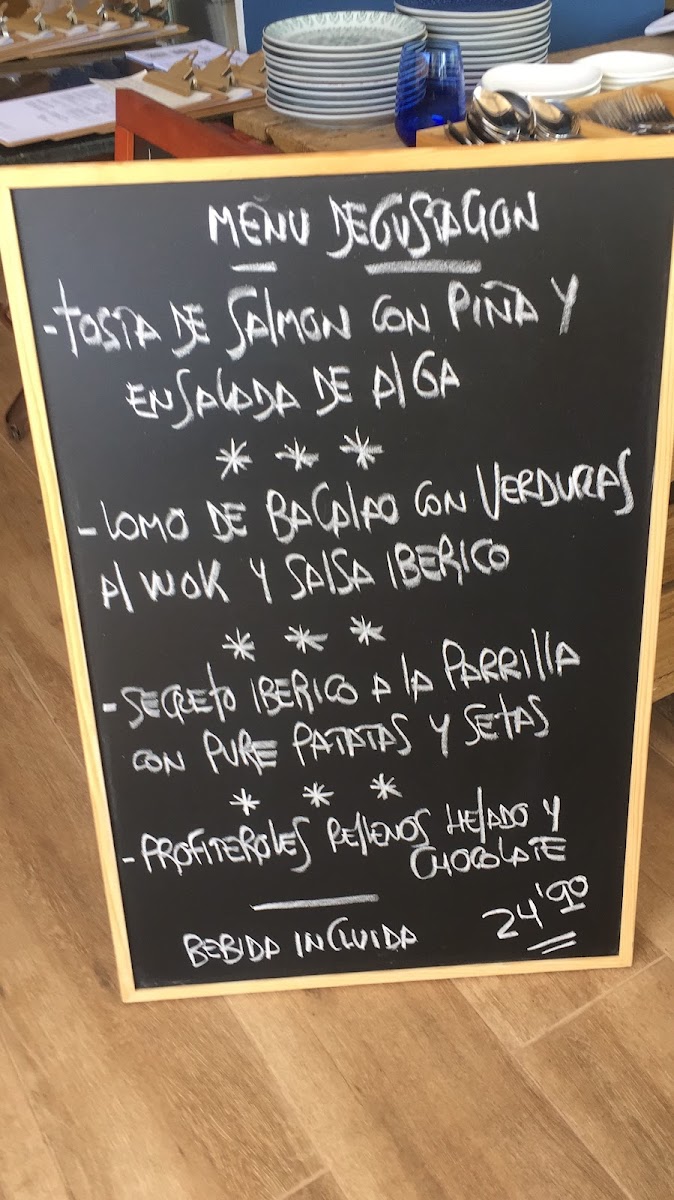 MENU DEGUSTACION
-TOSTA DE SALMON CON PIÑA Y
ENSALADA DE ALGA
* * *
-LOMO DE BACALAO CON VERDURAS
AL WOK Y SALSA IBERICO
* * *
-SECRETO IBERICO A LA PARRILLA
CON PURE PATATAS Y SETAS
* * *
-PROFITEROLES RELLENOS HELADO Y
CHOCOLATE
24'90
BEBIDA INCLUIDA